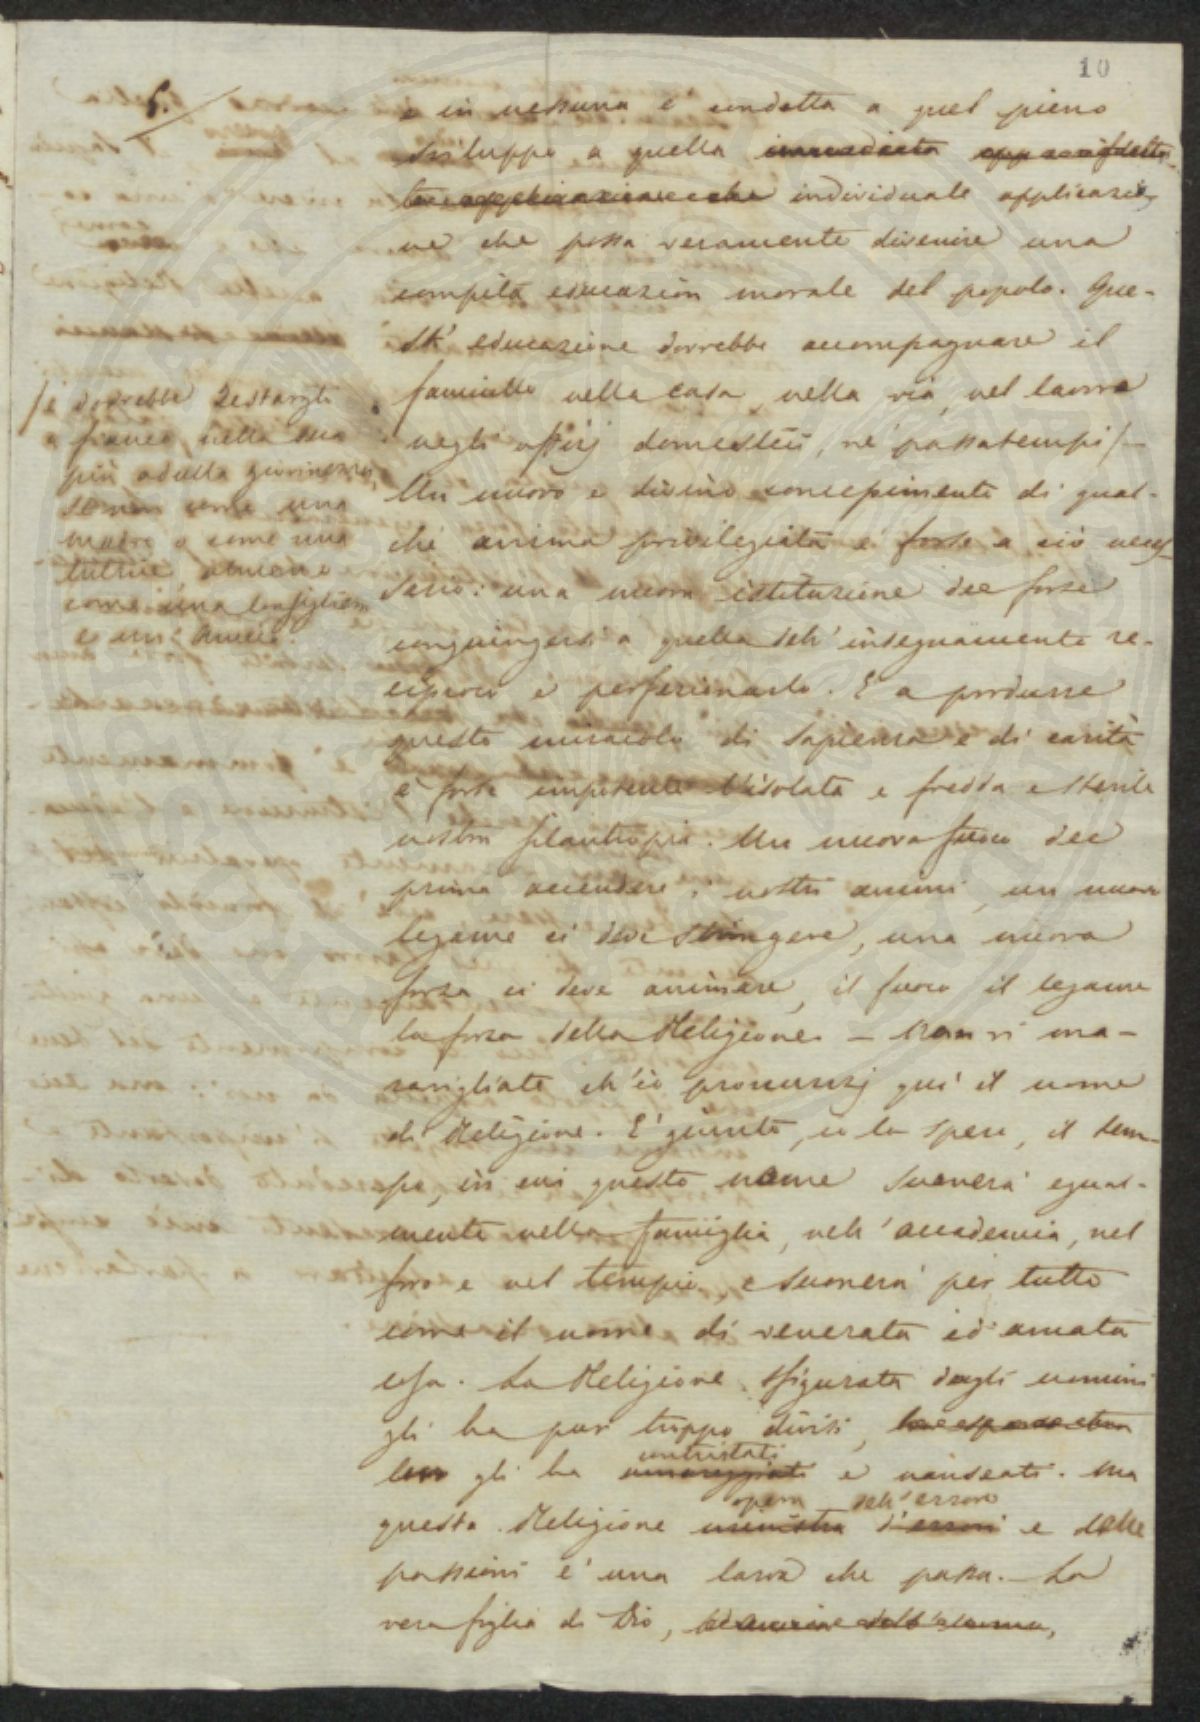 10
5.
e in nessuna è condotta a quel pieno
sviluppo a quella immediata
individuale applicazio
ne che possa veramente divenire una
compita educazion morale del popolo. Que-
st' educazione dovrebbe accompagnare il
fanciullo nella casa, nella via, nel lavoro
negli uffizj domestici, ne' passatempi /—
Un nuovo e divino concepimento di qual-
che anima privilegiata è forse a ciò neces-
sario: una nuova istituzione dee forse
congiungersi a quella dell' insegnamento re-
ciproco e perfezionarlo. E a produrre
questo miracolo di sapienza e di carità
è forse impotente l'isolata e fredda e sterile
nostra filantropia. Un nuovo fuoco dee
prima accendere i nostri animi, un nuovo
legame ci deve stringere, una nuova
forza ci deve animare, il fuoco il legame
la forza della Religione. — Non vi ma-
ravigliate ch'io pronunzj quì il nome
di Religione. E' giunto, io lo spero, il tem-
po, in cui questo nome suonerà egual-
mente nella famiglia, nell' accademia, nel
foro e nel tempio, e suonerà per tutto
come il nome di venerata ed amata
cosa. La Religione sfigurata dagli uomini
gli ha pur troppo divisi,
gli ha contristati e nauseati. Ma
questa Religione ministra d'errori opera dell'errore e delle
passioni è una larva che passa. — La
vera figlia di Dio,
/ e dovrebbe restargli
a fianco nella sua
più adulta giovinezza,
se non come una
madre o come una
tutrice, almeno
come una consigliera
e un' amica.